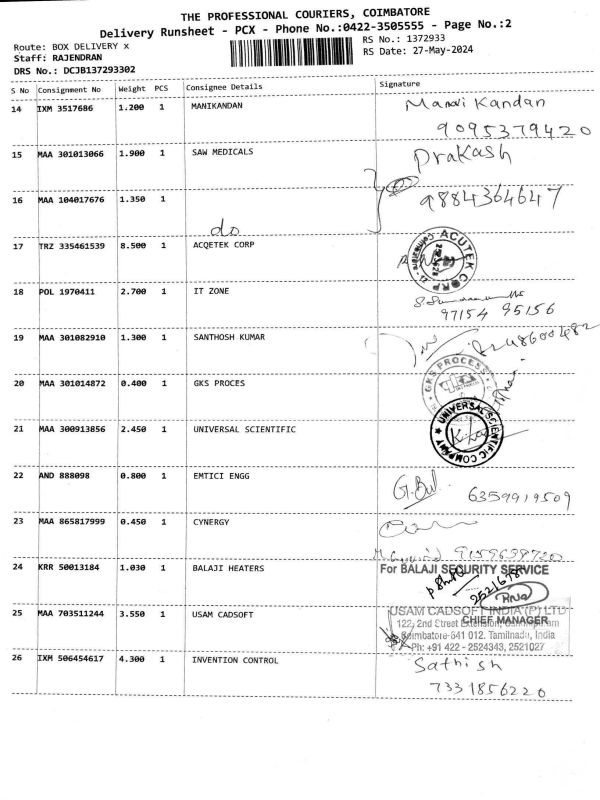 THE PROFESSIONAL COURIERS, COIMBATORE
Delivery Runsheet - PCX - Phone No.:0422-3505555 - Page No.:2
Route: BOX DELIVERY x
RS No.: 1372933
Staff: RAJENDRAN
RS Date: 27-May-2024
DRS No.: DCJB137293302
S No Consignment No Weight PCS Consignee Details Signature
14 IXM 3517686 1.200 1 MANIKANDAN Kandan
9095379420
15 MAA 301013066 1.900 1 SAW MEDICALS Prakash
16 MAA 104017676 1.350 1 9884364647
do
17 TRZ 335461539 8.500 1 ACQETEK CORP ACUTEK CORP
18 POL 1970411 2.700 1 IT ZONE
97154 95156
19 MAA 301082910 1.300 1 SANTHOSH KUMAR
20 MAA 301014872 0.400 1 GKS PROCES GKS PROCESS
21 MAA 300913856 2.450 1 UNIVERSAL SCIENTIFIC UNIVERSAL SCIENTIFIC COMPANY
22 AND 888098 0.800 1 EMTICI ENGG G.Bul
6359919509
23 MAA 865817999 0.450 1 CYNERGY
24 KRR 50013184 1.030 1 BALAJI HEATERS For BALAJI SECURITY SERVICE
25 MAA 703511244 3.550 1 USAM CADSOFT USAM CADSOFT INDIA (P) LTD
CHIEF MANAGER
122, 2nd Street Extension,
Coimbatore-641 012. Tamilnadu, India
Ph: +91 422 - 2524343, 2521027
26 IXM 506454617 4.300 1 INVENTION CONTROL Sathish
7331856220